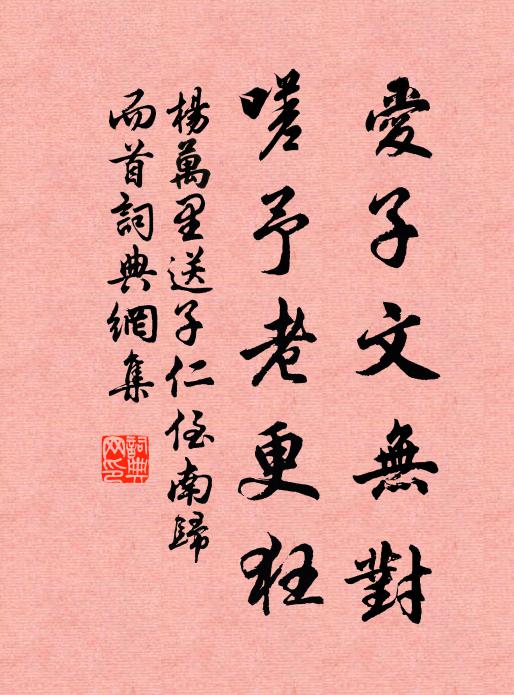 愛子文無對
嗟予老更狂
楊萬里送子仁侄南歸
而首詞典網集
詞典網印